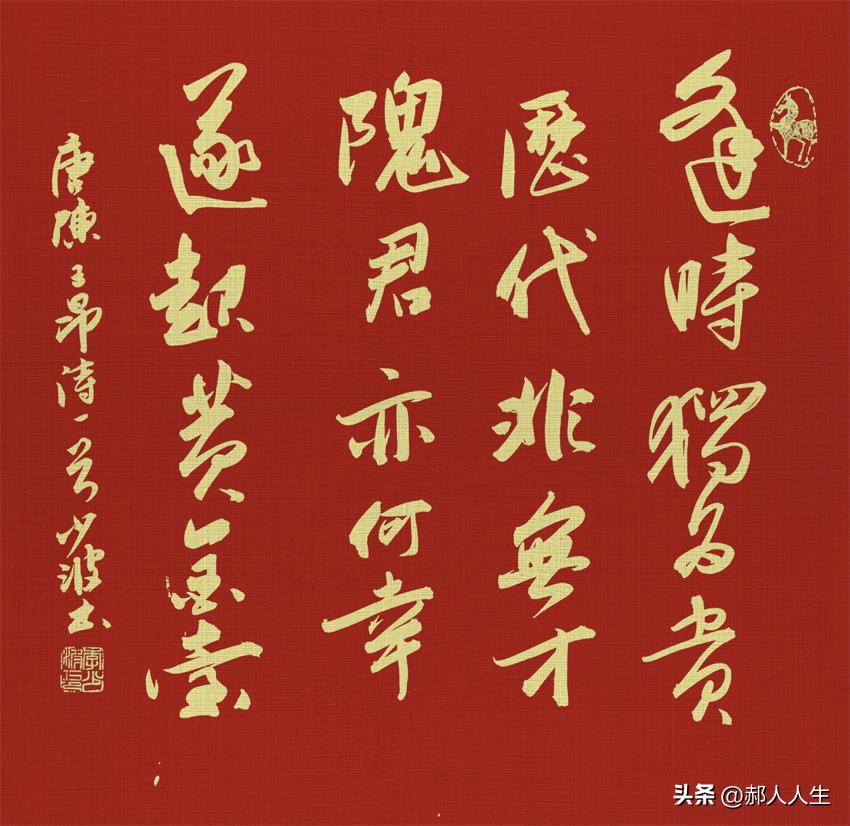 逢時獨為貴
歷代非無才
隗君亦何幸
遂起黃金臺
唐陳子昂詩一首 少波書
头条 @郝人人生